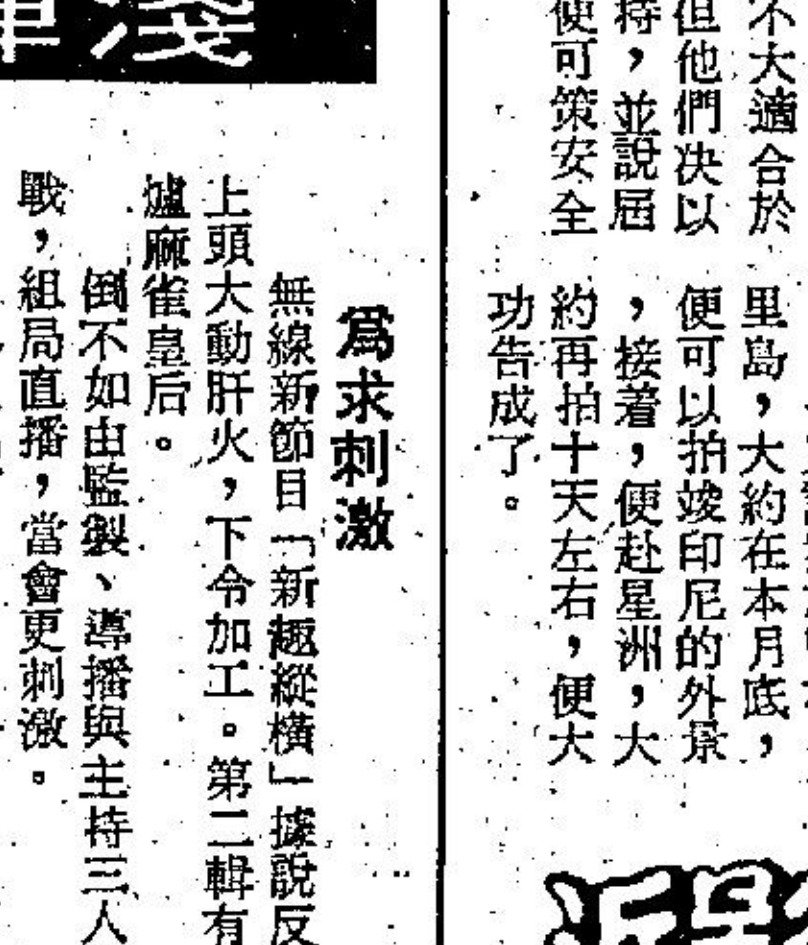 不大適合於
但他們決以
持，並說屆
便可策安全
里島，大約在本月底，
便可以拍竣印尼的外景
，接着，便赴星洲，大
約再拍十天左右，便大
功告成了。
爲求刺激
無線新節目「新趣縱橫」據說反
上頭大動肝火，下令加工。第二輯有
爐麻雀皇后。
倒不如由監製、導播與主持三人
戰，組局直播，當會更刺激。